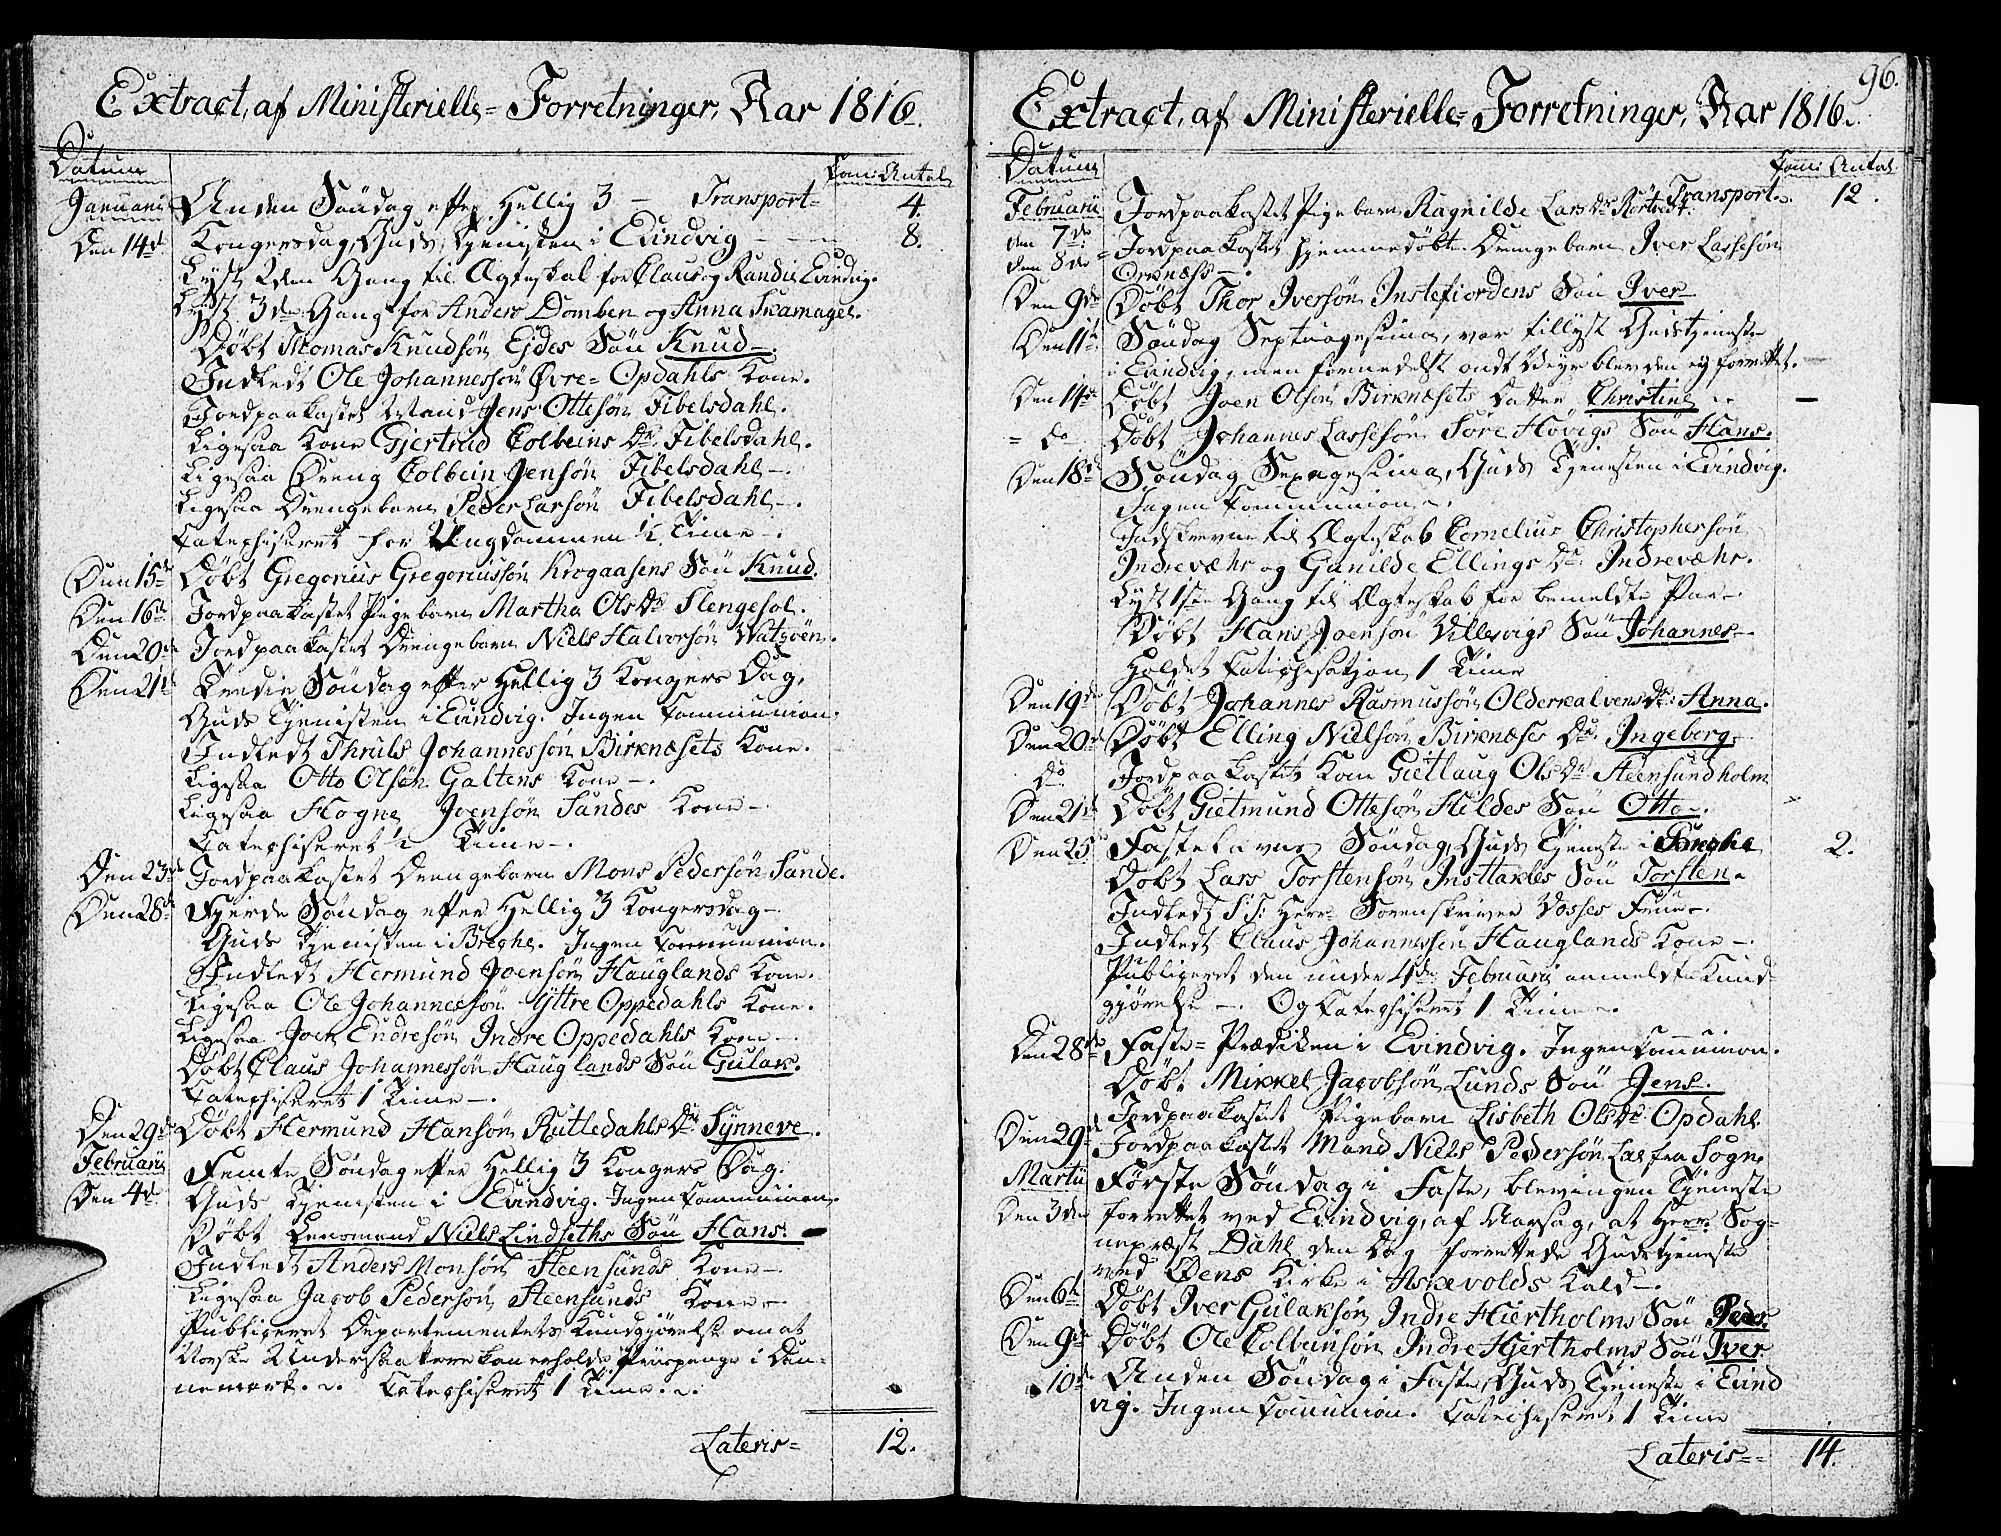 Extract, af Ministerielle= Forretninger, Aar 1816.
Datum
Com: Antal
Januarii Anden Søndag efter Hellig 3 — Transport= 4.
Den 14de Kongersdag, Guds Tjenisten i Evindvig — 8.
Lyst 2den Gang til Ægteskab for Claus og Randie Evindvig.
Lyst 3die Gang for Anders Domben og Anna Skamager.
Døbt Thomas Knudsøn Ejdes Søn Knud —.
Indledt Ole Johannessøn Øvre= Opdahls Kone.
Jordpaakastet Mand Jens Ottesøn Fibelsdahl.
Ligesaa Kone Gjertrud Colbeins Dr. Fibelsdahl.
Ligesaa Dreng Colbein Jensøn Fibelsdahl —.
Ligesaa Drengebarn Peder Larsøn Fibelsdahl —.
Catechiseret for Ungdommen ½ Time —.
Den 15de Døbt Gregorius Gregoriussøn Krogaasens Søn Knud.
Den 16de Jordpaakastet Pigebarn Martha Ols Dr. Slengesol.
Den 20de Jordpaakastet Drengebarn Niels Halvorsøn Watzøen.
Den 21de Tredie Søndag efter Hellig 3 Kongers Dag,
Guds Tjenisten i Evindvig. Ingen Communion.
Indledt Thruls Johannessøn Birknæsets Kone.
Ligesaa Otto Olsøn Galtens Kone —.
Ligesaa Hogne Joensøn Sandes Kone —.
Catechiseret ½ Time —.
Den 23de Jordpaakastet Drengebarn Mons Pedersøn Sande.
Den 28de Fjerde Søndag efter Hellig 3 Kongersdag —
Guds Tjenisten i Breghe. Ingen Communion.
Indledt Hermund Joensøn Hauglands Kone.
Ligesaa Ole Johannessøn Yttre Oppedahls Kone.
Ligesaa Joen Endresøn Indre Oppedahls Kone —.
Døbt Claus Johannessøn Hauglands Søn Gulak.
Catechiseret 1 Time —.
Den 29de Døbt Hermund Hansøn Rutledahls Dr. Synneve.
Februarii Femte Søndag efter Hellig 3 Kongers Dag.
Den 4de Guds Tjenisten i Evindvig. Ingen Communion.
Døbt Lensmand Niels Lindseths Søn Hans.
Indledt Anders Monsøn Steensunds Kone —.
Ligesaa Jacob Pedersøn Steensunds Kone —
Publiceret Departementets Kundgjørelse om at
Norske Undersaattere kan erholde Priispenge i Dan-
nemark. Catechiseret 1 Time.
Lateris= 12.
96.
Extract, af Ministerielle= Forretninger, Aar 1816.
Datum
Com: Antal
Februarii Transport. 12.
den 7de Jordpaakastet Pigebarn Ragnilde Lars Dr. Rørtvedt.
den 8de Jordpaakastet hjemmedøbt Drengebarn Iver Lassesøn
Ørnæss —.
Den 9de Døbt Thor Iversøn Instefiordens Søn Iver
Den 11te Søndag Septuagesima, var tillyst Gudstjeneste
i Evindvig, men formedelst ondt Weyr blev den ey forrettet.
Den 14de Døbt Joen Olsøn Birknæsets Datter Christine
do Døbt Johannes Lassesøn Søre Høvigs Søn Hans.
Den 18de Søndag Sexagesima, Guds Tjenisten i Evindvig.
Ingen Communion.
Indskrevne til Ægteskab Cornelius Christophersøn
Indrevæhr og Gunilde Ellings Dr. Indrevæhr.
Lyst 1ste Gang til Ægteskab for bemeldte Par —.
Døbt Hans Joensøn Villesvigs Søn Johannes —
Holdet Catechisation 1 Time
Den 19de Døbt Johannes Rasmussøn Olderkalvens Dr. Anna.
Den 20de Døbt Elling Nielsøn Birknæses Dr. Ingeborg.
Do Jordpaakastet Kone Gietlaug Ols Dr. Steensundholm
Den 21de Døbt Gietmund Ottesøn Hildes Søn Otto.
Den 25 Fastelavns Søndag, Guds Tjeneste i Breghe 2.
Døbt Lars Torstensøn Insttakles Søn Torsten.
Indledt S: T: Herr Sorenskriver Vosses Frue —.
Indledt Claus Johannessøn Hauglands Kone —.
Publiceret den under 4de Februarii anmeldte Kund-
gjørelse —. Og Catechiseret 1 Time.
Den 28de Faste= Prædiken i Evindvig. Ingen Communion.
Døbt Mikkel Jacobsøn Lunds Søn Jens.
Jordpaakastet Pigebarn Lisbeth Ols Dr. Opdahl.
Den 29de Jordpaakastet Mand Niels Pedersøn Las fra Sogn
Martii Første Søndag i Faste, blev ingen Tjeneste
Den 3die forrettet ved Evindvig, af Aarsag, at Herr Sog=
nepræst Dahl den Dag forrettede Gudstjeneste
ved Øens Kirke i Askevolds Kald —.
Den 6te Døbt Iver Gulaksøn Indre Hiertholms Søn Peder.
Den 9de Døbt Ole Colbeinsøn Indre Hjertholms Søn Iver
10de Anden Søndag i Faste, Guds Tjeneste i Evind
vig. Ingen Communion. Catechiseret 1 Time
Lateris= 14.